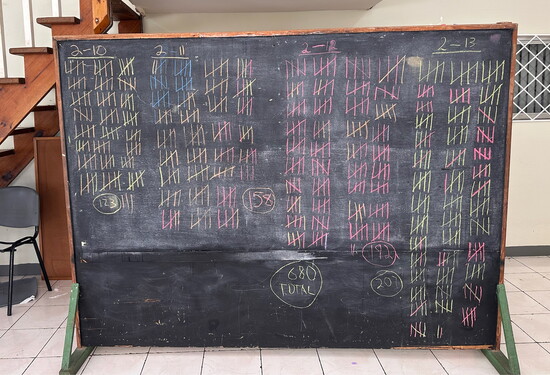 2-10
2-11
2-12
2-13
123
158
192
207
680
TOTAL